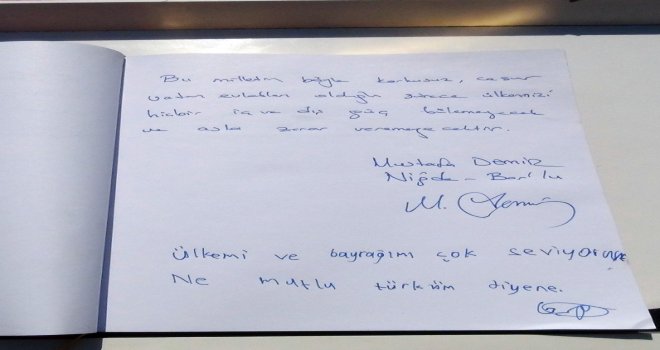 Bu milletin böyle korkusuz, cesur
vatan evlatları olduğu sürece ülkemizi
hiçbir iç ve dış güç bölemeyecek
ve asla zarar veremeyecektir.
Mustafa Demir
Niğde - Bor'lu
M. Demir
ülkemi ve bayrağım çok seviyorum
Ne mutlu türküm diyene.